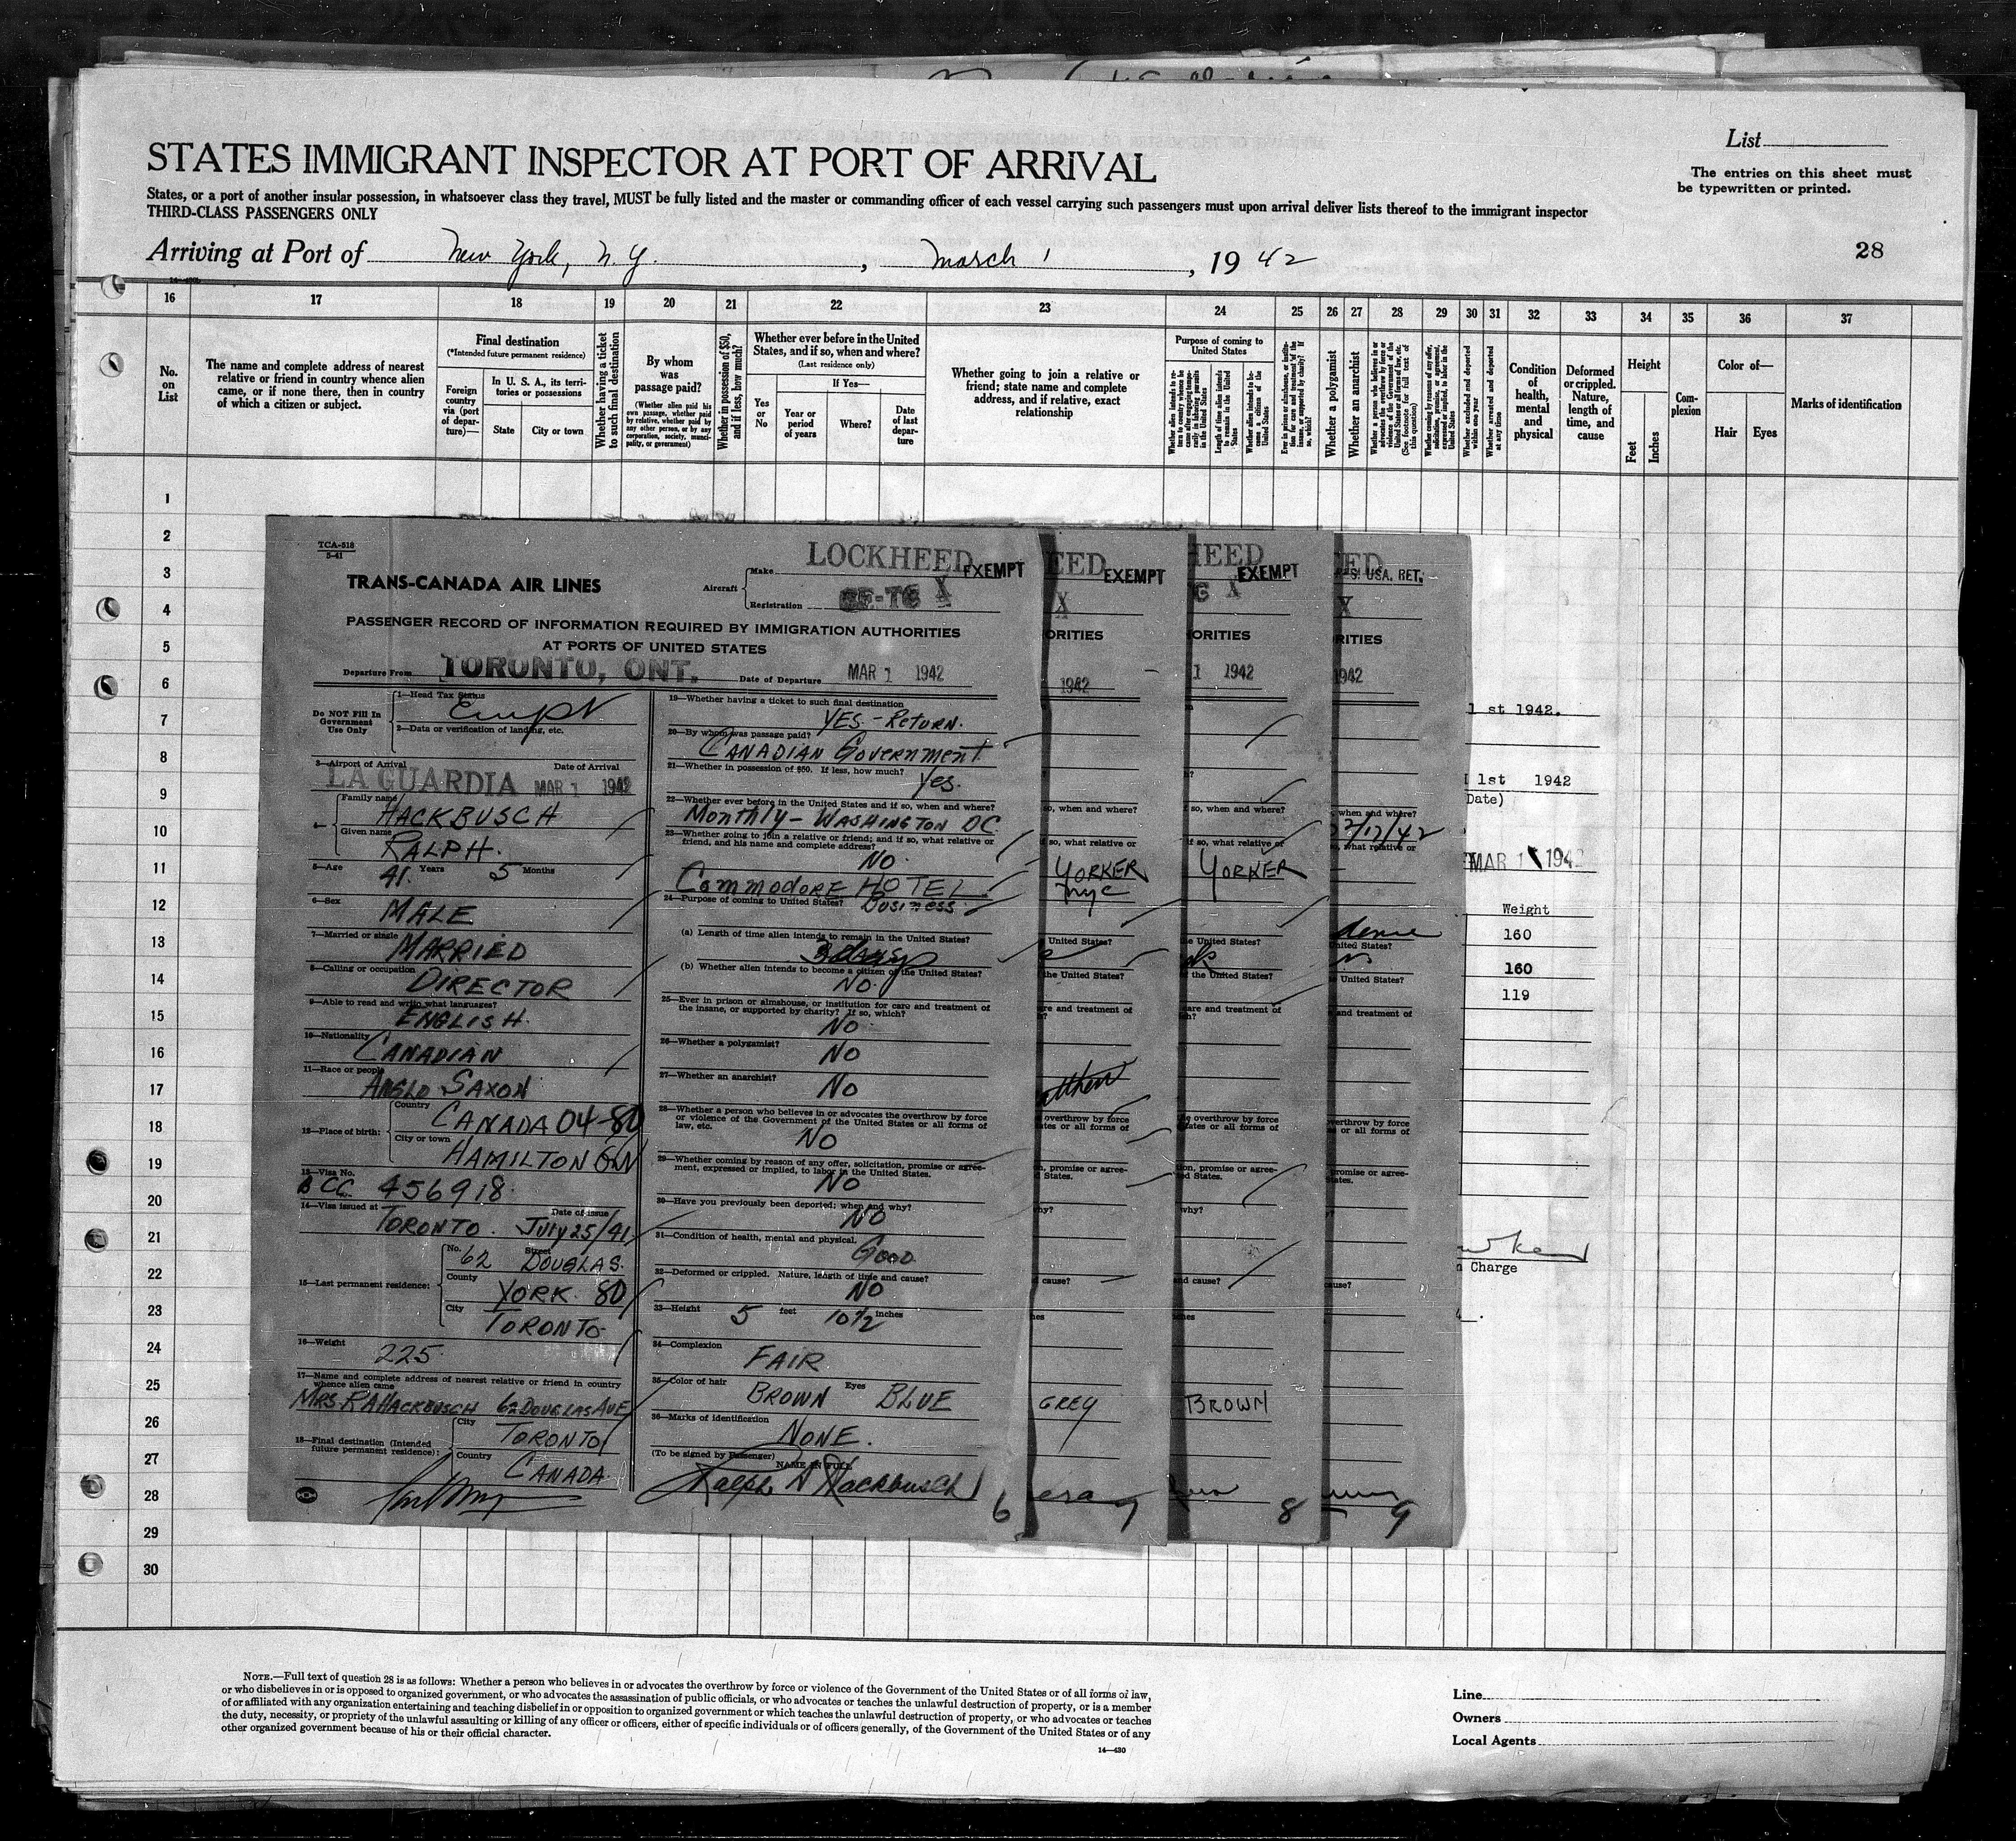 List
STATES IMMIGRANT INSPECTOR AT PORT OF ARRIVAL
The entries on this sheet must
be typewritten or printed.
States, or a port of another insular possession, in whatsoever class they travel, MUST be fully listed and the master or commanding officer of each vessel carrying such passengers must upon arrival deliver lists thereof to the immigrant inspector
THIRD-CLASS PASSENGERS ONLY
Arriving at Port of New York, N.Y., March 1, 1942
28
16 17 18 19 20 21 22 23 24 25 26 27 28 29 30 31 32 33 34 35 36 37
No. on List
The name and complete address of nearest relative or friend in country whence alien came, or if none there, then in country of which a citizen or subject.
Final destination
(*Intended future permanent residence)
Foreign country via (port of departure)—
In U. S. A., its territories or possessions
State
City or town
Whether having a ticket to such final destination
By whom was passage paid?
(Whether alien paid his own passage, whether paid by relative, whether paid by any other person, or by any corporation, society, municipality, or government)
Whether in possession of $50, and if less, how much?
Whether ever before in the United States, and if so, when and where?
(Last residence only)
Yes or No
If Yes—
Year or period of years
Where?
Date of last departure
Whether going to join a relative or friend; state name and complete address, and if relative, exact relationship
Purpose of coming to United States
Length of time alien intends to remain in the United States
Whether a polygamist
Whether an anarchist
Whether excluded and deported within one year
Whether arrested and deported at any time
Condition of health, mental and physical
Deformed or crippled. Nature, length of time, and cause
Height
Feet
Inches
Complexion
Color of—
Hair
Eyes
Marks of identification
1
2
3
4
5
6
7
8
9
10
11
12
13
14
15
16
17
18
19
20
21
22
23
24
25
26
27
28
29
30
TCA-518
5-41
TRANS-CANADA AIR LINES
Aircraft
Make LOCKHEED
EXEMPT
Registration CF-TC X
PASSENGER RECORD OF INFORMATION REQUIRED BY IMMIGRATION AUTHORITIES
AT PORTS OF UNITED STATES
Departure From TORONTO, ONT. Date of Departure MAR 1 1942
Do NOT Fill In
Government
Use Only
1—Head Tax Status
2—Data or verification of landing, etc.
3—Airport of Arrival Date of Arrival
LA GUARDIA MAR 1 1942
Family name HACKBUSCH
Given name RALPH.
5—Age 41 Years 5 Months
6—Sex MALE
7—Married or single MARRIED
8—Calling or occupation DIRECTOR
9—Able to read and write what languages? ENGLISH.
10—Nationality CANADIAN
11—Race or people ANGLO SAXON
12—Place of birth:
Country CANADA 04-80
City or town HAMILTON
13—Visa No.
BCC. 456918.
14—Visa issued at TORONTO. Date of issue July 25/41
15—Last permanent residence:
No. 62 Street DOUGLAS.
County YORK. 80
City TORONTO
16—Weight 225
17—Name and complete address of nearest relative or friend in country
whence alien came
MRS. R A HACKBUSCH 62 DOUGLAS AVE
18—Final destination (Intended
future permanent residence):
City TORONTO
Country CANADA.
19—Whether having a ticket to such final destination
YES - RETURN.
20—By whom was passage paid?
CANADIAN GOVERNMENT
21—Whether in possession of $50. If less, how much? Yes.
22—Whether ever before in the United States and if so, when and where?
Monthly - WASHINGTON DC
23—Whether going to join a relative or friend; and if so, what relative or
friend, and his name and complete address?
NO.
COMMODORE HOTEL
24—Purpose of coming to United States? BUSINESS.
(a) Length of time alien intends to remain in the United States?
3 days
(b) Whether alien intends to become a citizen of the United States?
NO.
25—Ever in prison or almshouse, or institution for care and treatment of
the insane, or supported by charity? If so, which?
NO.
26—Whether a polygamist?
NO
27—Whether an anarchist?
NO
28—Whether a person who believes in or advocates the overthrow by force
or violence of the Government of the United States or all forms of
law, etc.
NO
29—Whether coming by reason of any offer, solicitation, promise or agree-
ment, expressed or implied, to labor in the United States.
NO
30—Have you previously been deported; when and why?
NO
31—Condition of health, mental and physical.
GOOD
32—Deformed or crippled. Nature, length of time and cause?
NO
33—Height 5 feet 10 1/2 inches
34—Complexion
FAIR
35—Color of hair BROWN Eyes BLUE
36—Marks of identification
NONE.
(To be signed by Passenger)
NAME IN FULL
Ralph A Hackbusch
6
EED
EXEMPT
X
ORITIES
1942
so, when and where?
so, what relative or
YORKER
nyc
United States?
the United States?
overthrow by force
GREY
7
HEED
EXEMPT
X
ORITIES
1 1942
YORKER
BROWN
8
USA. RET.
X
RITIES
1942
when and where?
9
1 st 1942.
1st 1942
Date)
MAR 1 194
Weight
160
160
119
n Charge
NOTE.—Full text of question 28 is as follows: Whether a person who believes in or advocates the overthrow by force or violence of the Government of the United States or of all forms of law,
or who disbelieves in or is opposed to organized government, or who advocates the assassination of public officials, or who advocates or teaches the unlawful destruction of property, or is a member
of or affiliated with any organization entertaining and teaching disbelief in or opposition to organized government or which teaches the unlawful destruction of property, or who advocates or teaches
the duty, necessity, or propriety of the unlawful assaulting or killing of any officer or officers, either of specific individuals or of officers generally, of the Government of the United States or of any
other organized government because of his or their official character.
14—430
Line
Owners
Local Agents